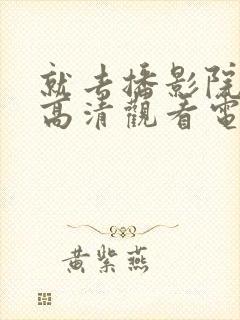 就去播影院
高清觀看電
黃紫燕